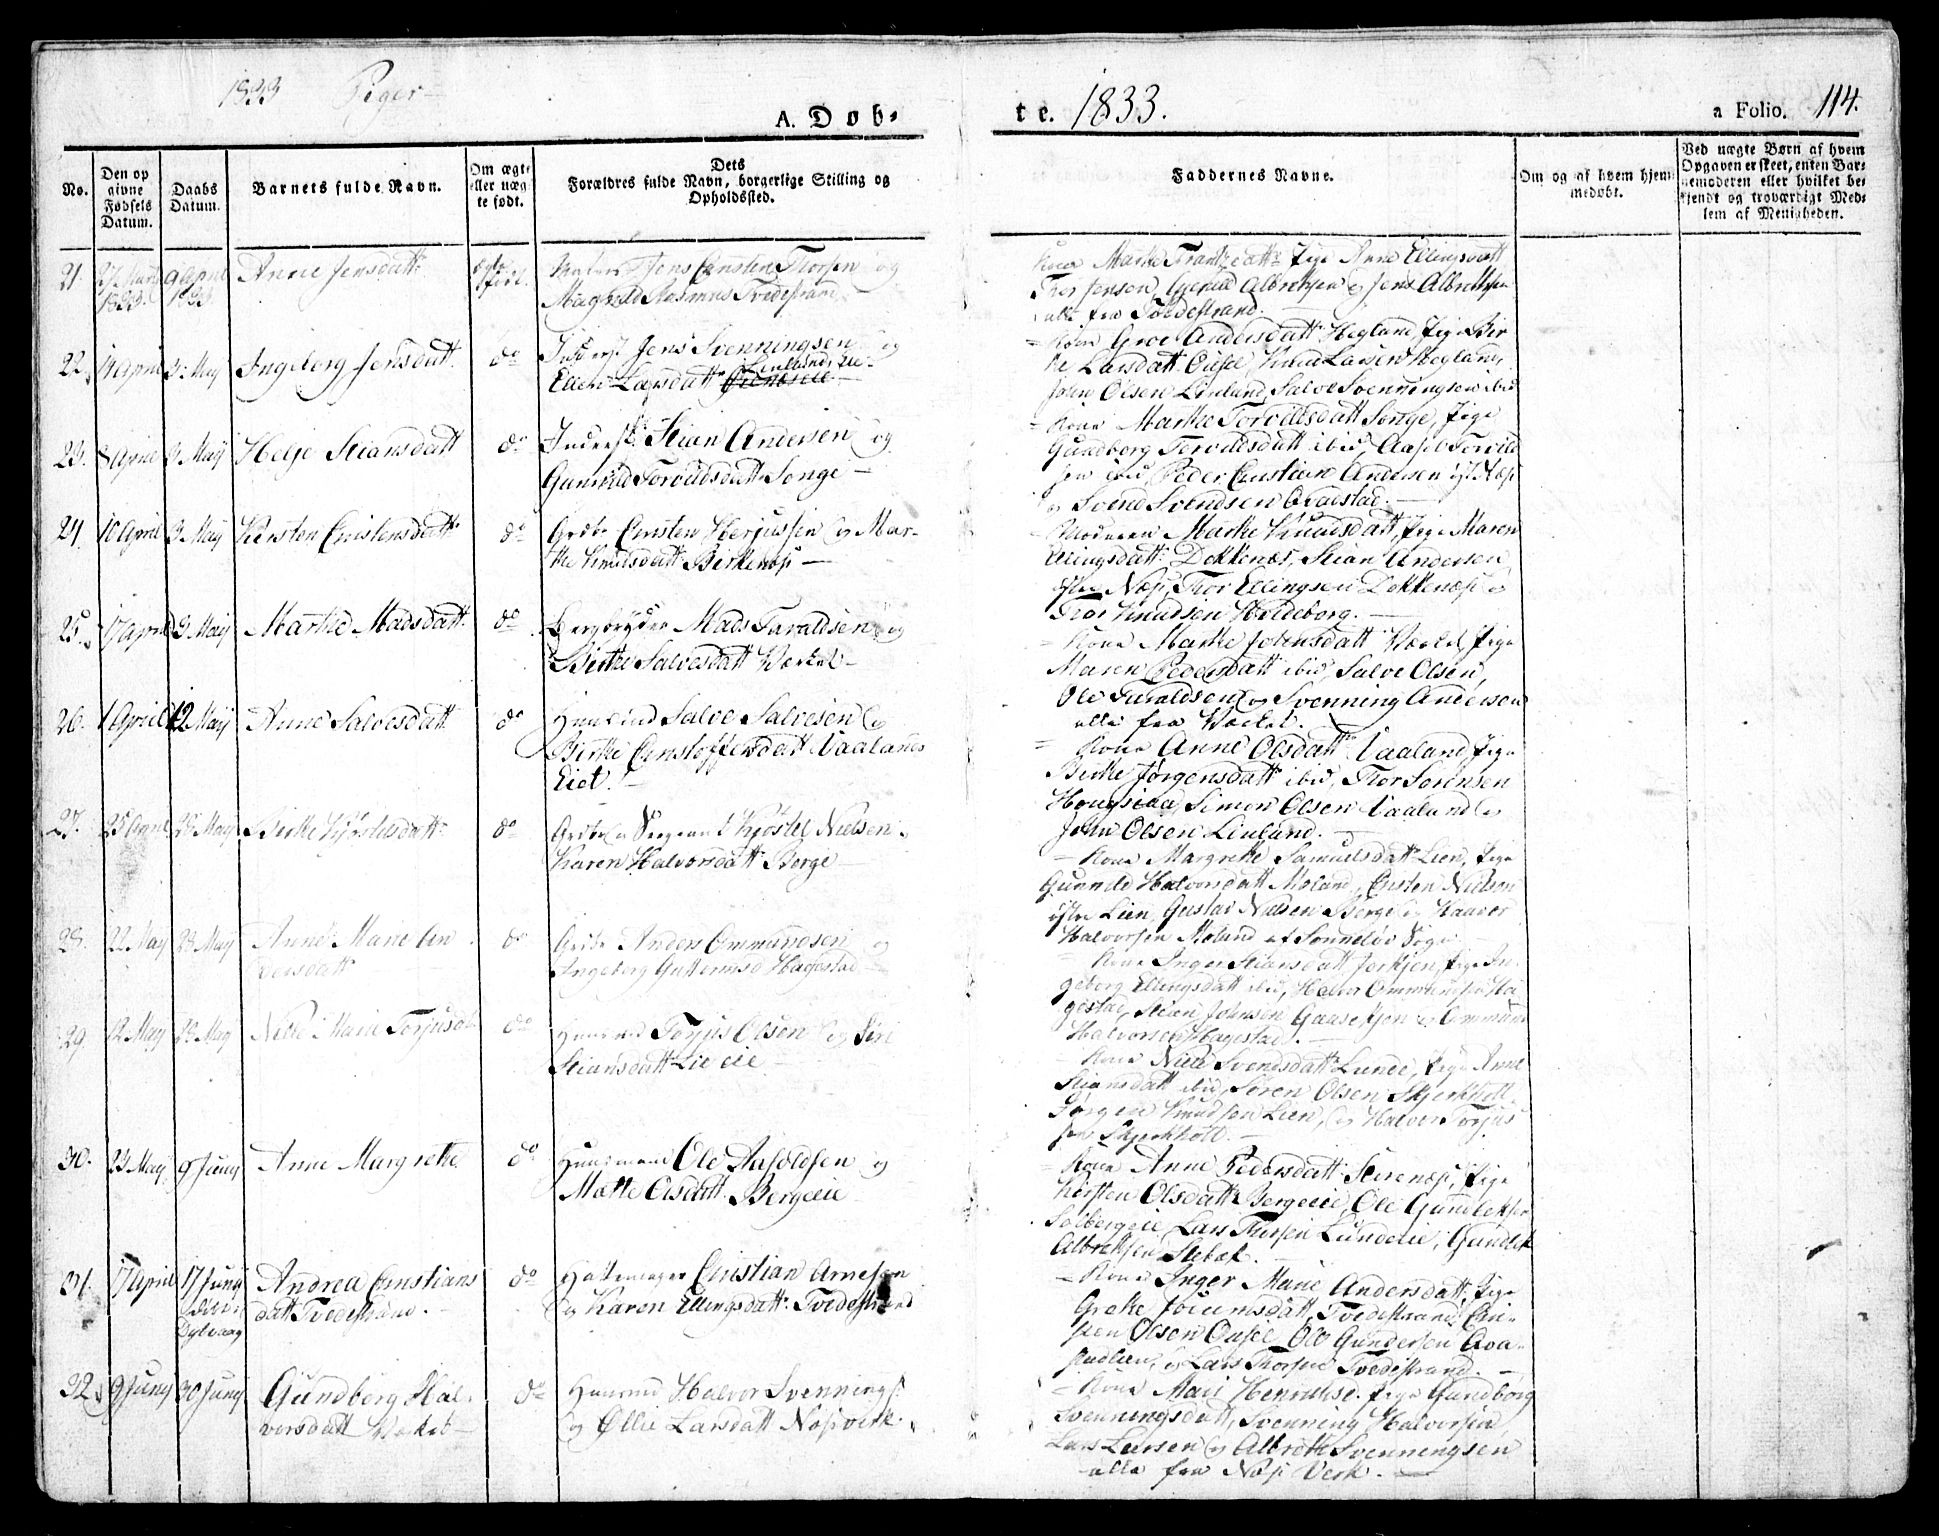 1833 Piger
A. Døb-
te. 1833.
a Folio. 114.
No.
Den op
givne
Fødsels
Datum.
Daabs
Datum.
Barnets fulde Navn.
Om ægte
eller uæg
te født.
Dets
Forældres fulde Navn, borgerlige Stilling og
Opholdssted.
Faddernes Navne.
Om og af hvem hjem
medøbt.
Ved uægte Børn af hvem
Opgaven er skeet, enten Bar-
nemoderen eller hvilket be-
kjendt og troværdigt Med-
lem af Menigheden.
21.
1833.
9 April
1833
Anne Jensdatt:
ægte
født.
Jens Christen Thorsen og
Maghild Rasmus Tvedestrand
Kone Marthe Frantzdatt: Pige Anne Ellingsdatt
Thor Jensen, Albretsen og Jens Albretsen
alle fra Tvedestrand.
22.
14 April
3 May
Ingeborg Jensdatt.
do
Inderst Jens Svenningsen og
Ellen Larsdatt Linlund, eie
Kone Groe Andersdatt Hegland, Pige Bir
the Larsdatt Ousel, Knud Larsen Hegland,
John Olsen Linlund, Salve Svenningsen ibid
23.
8 April
3 May
Helje Stiansdatt
do
Inderst: Stian Andersen og
Gunnild Torvildsdatt Songe
Kone Marthe Torvildsdatt Songe, Pige
Gundborg Torvildsdatt ibid, Aasel Torvild
sen ibid Peder Christian Andersen
og Svend Svendsen Qvalstad.
24.
10 April
3 May
Kirsten Christensdatt
do
Grdbr Christen Herjussen og Mar-
the Knudsdatt Birkenæs
Moderen Marthe Knudsdatt, Pige Maren
Ellingsdatt: Dekkenæs, Stian Andersen
Næs, Thor Ellingsen Dekkenæs og
Thor Knudsen Holdeborg.
25.
17 April
3 May
Marthe Madsdatt.
do
Bergbryder Mads Taraldsen og
Birthe Salvesdatt Værket
Kone Marthe Johnsdatt Værket, Pige
Maren Pedersdatt ibid, Salve Olsen,
Ole Taraldsen og Svenning Andersen
alle fra Værket.
26.
1 April
12 May
Anne Salvesdatt
do
Huusmd Salve Salvesen og
Birthe Christoffersdatt Vaalands
Eiet.
Kone Anne Olsdatt Vaaland, Pige
Birthe Jørgensdatt ibid, Thor Sørensen
Simon Olsen Vaaland og
John Olsen Linlund.
27.
25 April
28 May
Birthe Kjøstelsdatt:
do
Grdbr og Sergeant Kjøstel Nielsen
Karen Halvorsdatt Berge
Kone Margrethe Samuelsdatt Lien, Pige
Gunnild Halvorsdatt Moland, Christen Nielsen
østre Lien, Gustav Nielsen Berge og Haaver
Halvorsen Moland af Sønneløv Sogn
28.
22 May
28 May
Anne Marie An
dersdatt
do
Grdbr Anders Ommundsen og
Ingeborg Guttormsd Hagestad
Kone Inger Stiansdatt, Pige In-
geborg Ellingsdatt ibid, Halvor Ommundsen Ha
gestad, Stian Johnsen Gaasekjen og Ommund
Halvorsen Hagestad.
29
12 May
28 May
Nelle Marie Torjusd.
do
Huusmd Torjus Olsen og Siri
Stiansdatt Lie eie
Kone Niele Svendsdatt Lunde, Pige Anne
Stiansdatt ibid, Søren Olsen Skjerkholt
Jørgen Knudsen Lien, og Halvor Torjus
sen Skjerkholt.
30.
23 May
9 Juny
Anne Margrethe
do
Huusmand Ole Aasoldsen og
Mette Olsdatt Bergeeie
Kone Anne Pedersdatt Sterenæs, Pige
Kirsten Olsdatt Bergeeie, Ole Gundleksen
Solbergeie, Lars Thorsen Lundeeie, Gundlek
Albretsen Slebæk.
31.
17 April
17 Juny
Dybvaag
Andrea Christians
datt Tvedestrand.
do
Hattemager Christian Arnesen
og Karen Ellingsdatt. Tvedestrand
Kone Inger Marie Andersdatt, Pige
Grethe Joiumsdatt, Tvedestrand, Chri-
sten Olsen Ousel, Ole Gundersen Qva-
stadlien, og Lars Thorsen Tvedestrand.
32.
9 Juny
30 Juny
Gundborg Hal-
vorsdatt Værket
do
Huusmd Halvor Svennings:
og Øllie Larsdatt Næsværk.
Kone Mari Henrikse. Pige Gundborg
Svenningsdatt, Svenning Halvorsen,
Lars Larsen og Albreth Svenningsen
alle fra Næs Verk.